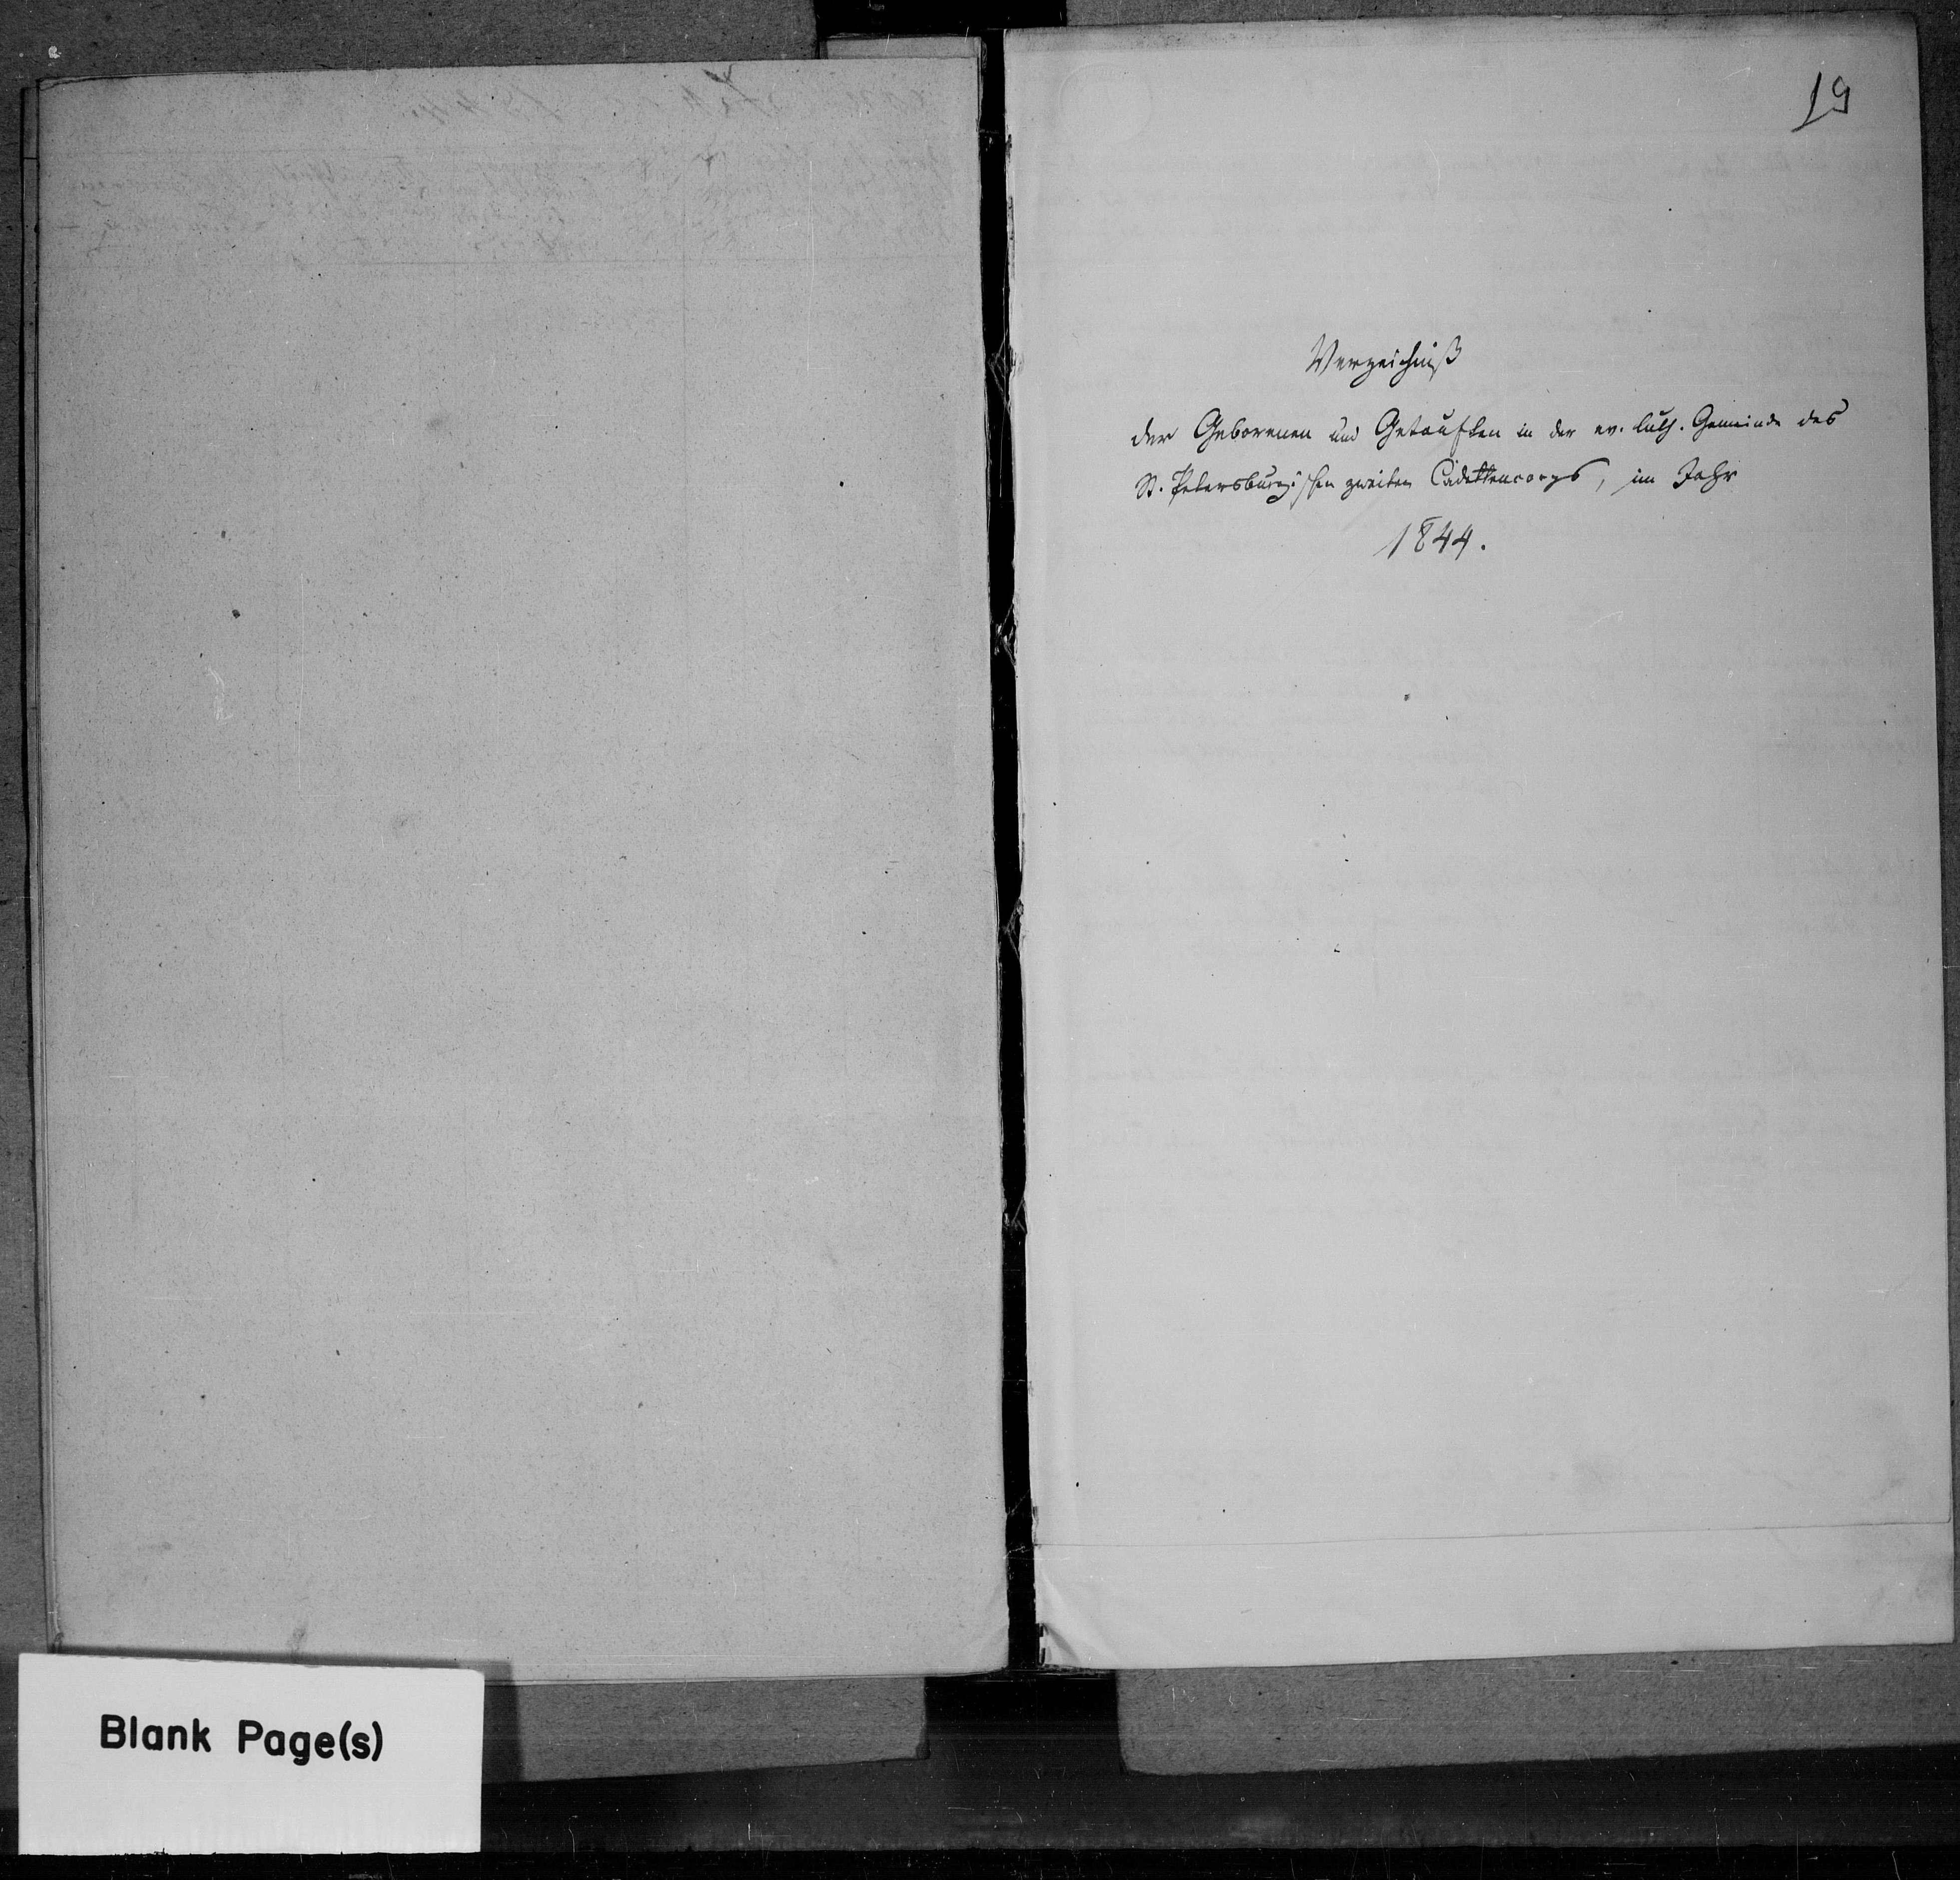 19
Verzeichniß
der Geborenen und Getauften in der ev. luth. Gemeinde des
St. Petersburgischen zweiten Cadettencorps, im Jahr
1844.
Blank Page(s)